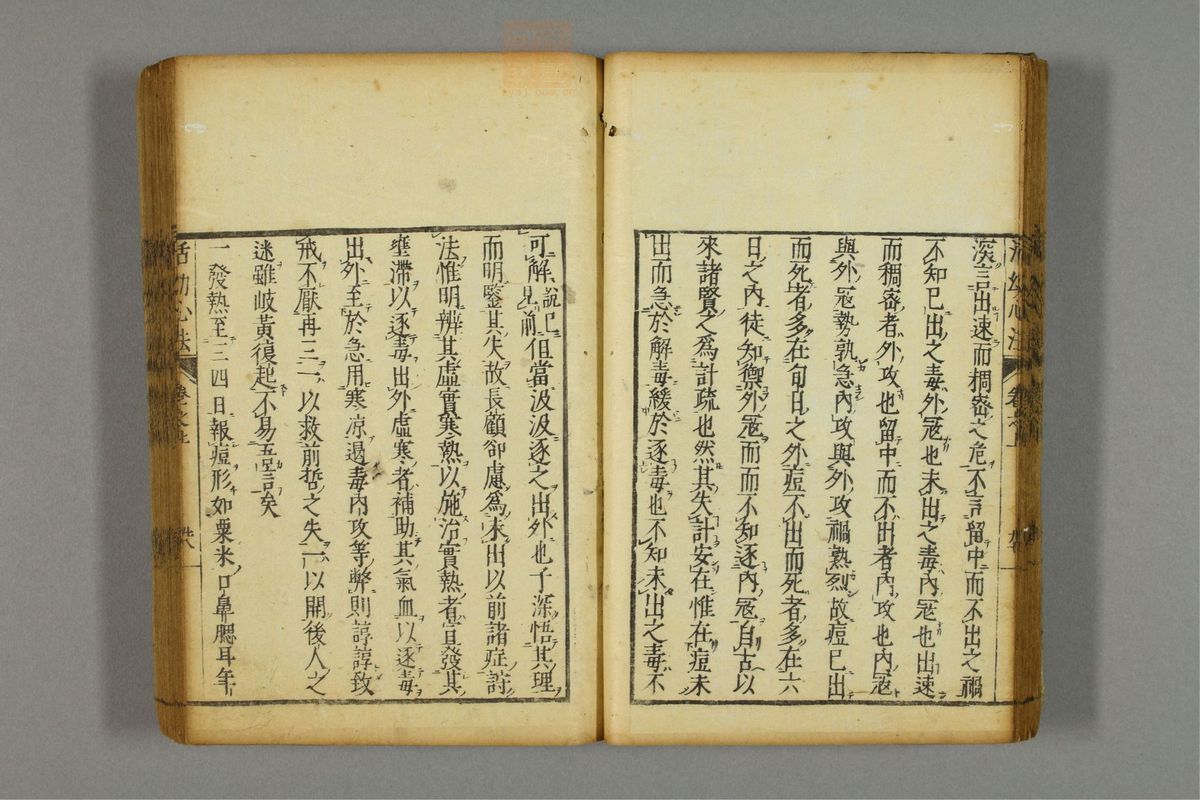 深言出速而稠密之危不言留中而不出之禍
不知已出之毒外寇也未出之毒內寇也出速
而稠密者外攻也留中而不出者內攻也內寇
與外寇勢孰急內攻與外攻禍熟烈故痘已出
而死者多在旬日之外痘不出而死者多在六
日之內徒知禦外寇而而不知逐內寇自古以
來諸賢之爲計疏也然其失計安在惟在痘未
出而急於解毒緩於逐毒也不知未出之毒不
可解說已見前但當汲汲逐之出外也予深悟其理
而明鑒其失故長顧卻慮爲未出以前諸症詩
法惟明辨其虛實寒熱以施治實熱者宜發其
壅滯以逐毒出外虛寒者補助其氣血以逐毒
出外至於急用寒凉遏毒內攻等弊則諄諄致
戒不厭再三一以救前哲之失一以開後人之
迷雖岐黃復起不易吾言矣
一發熱至三四日報痘形如粟米口鼻腮耳年
活幼心法 卷之上